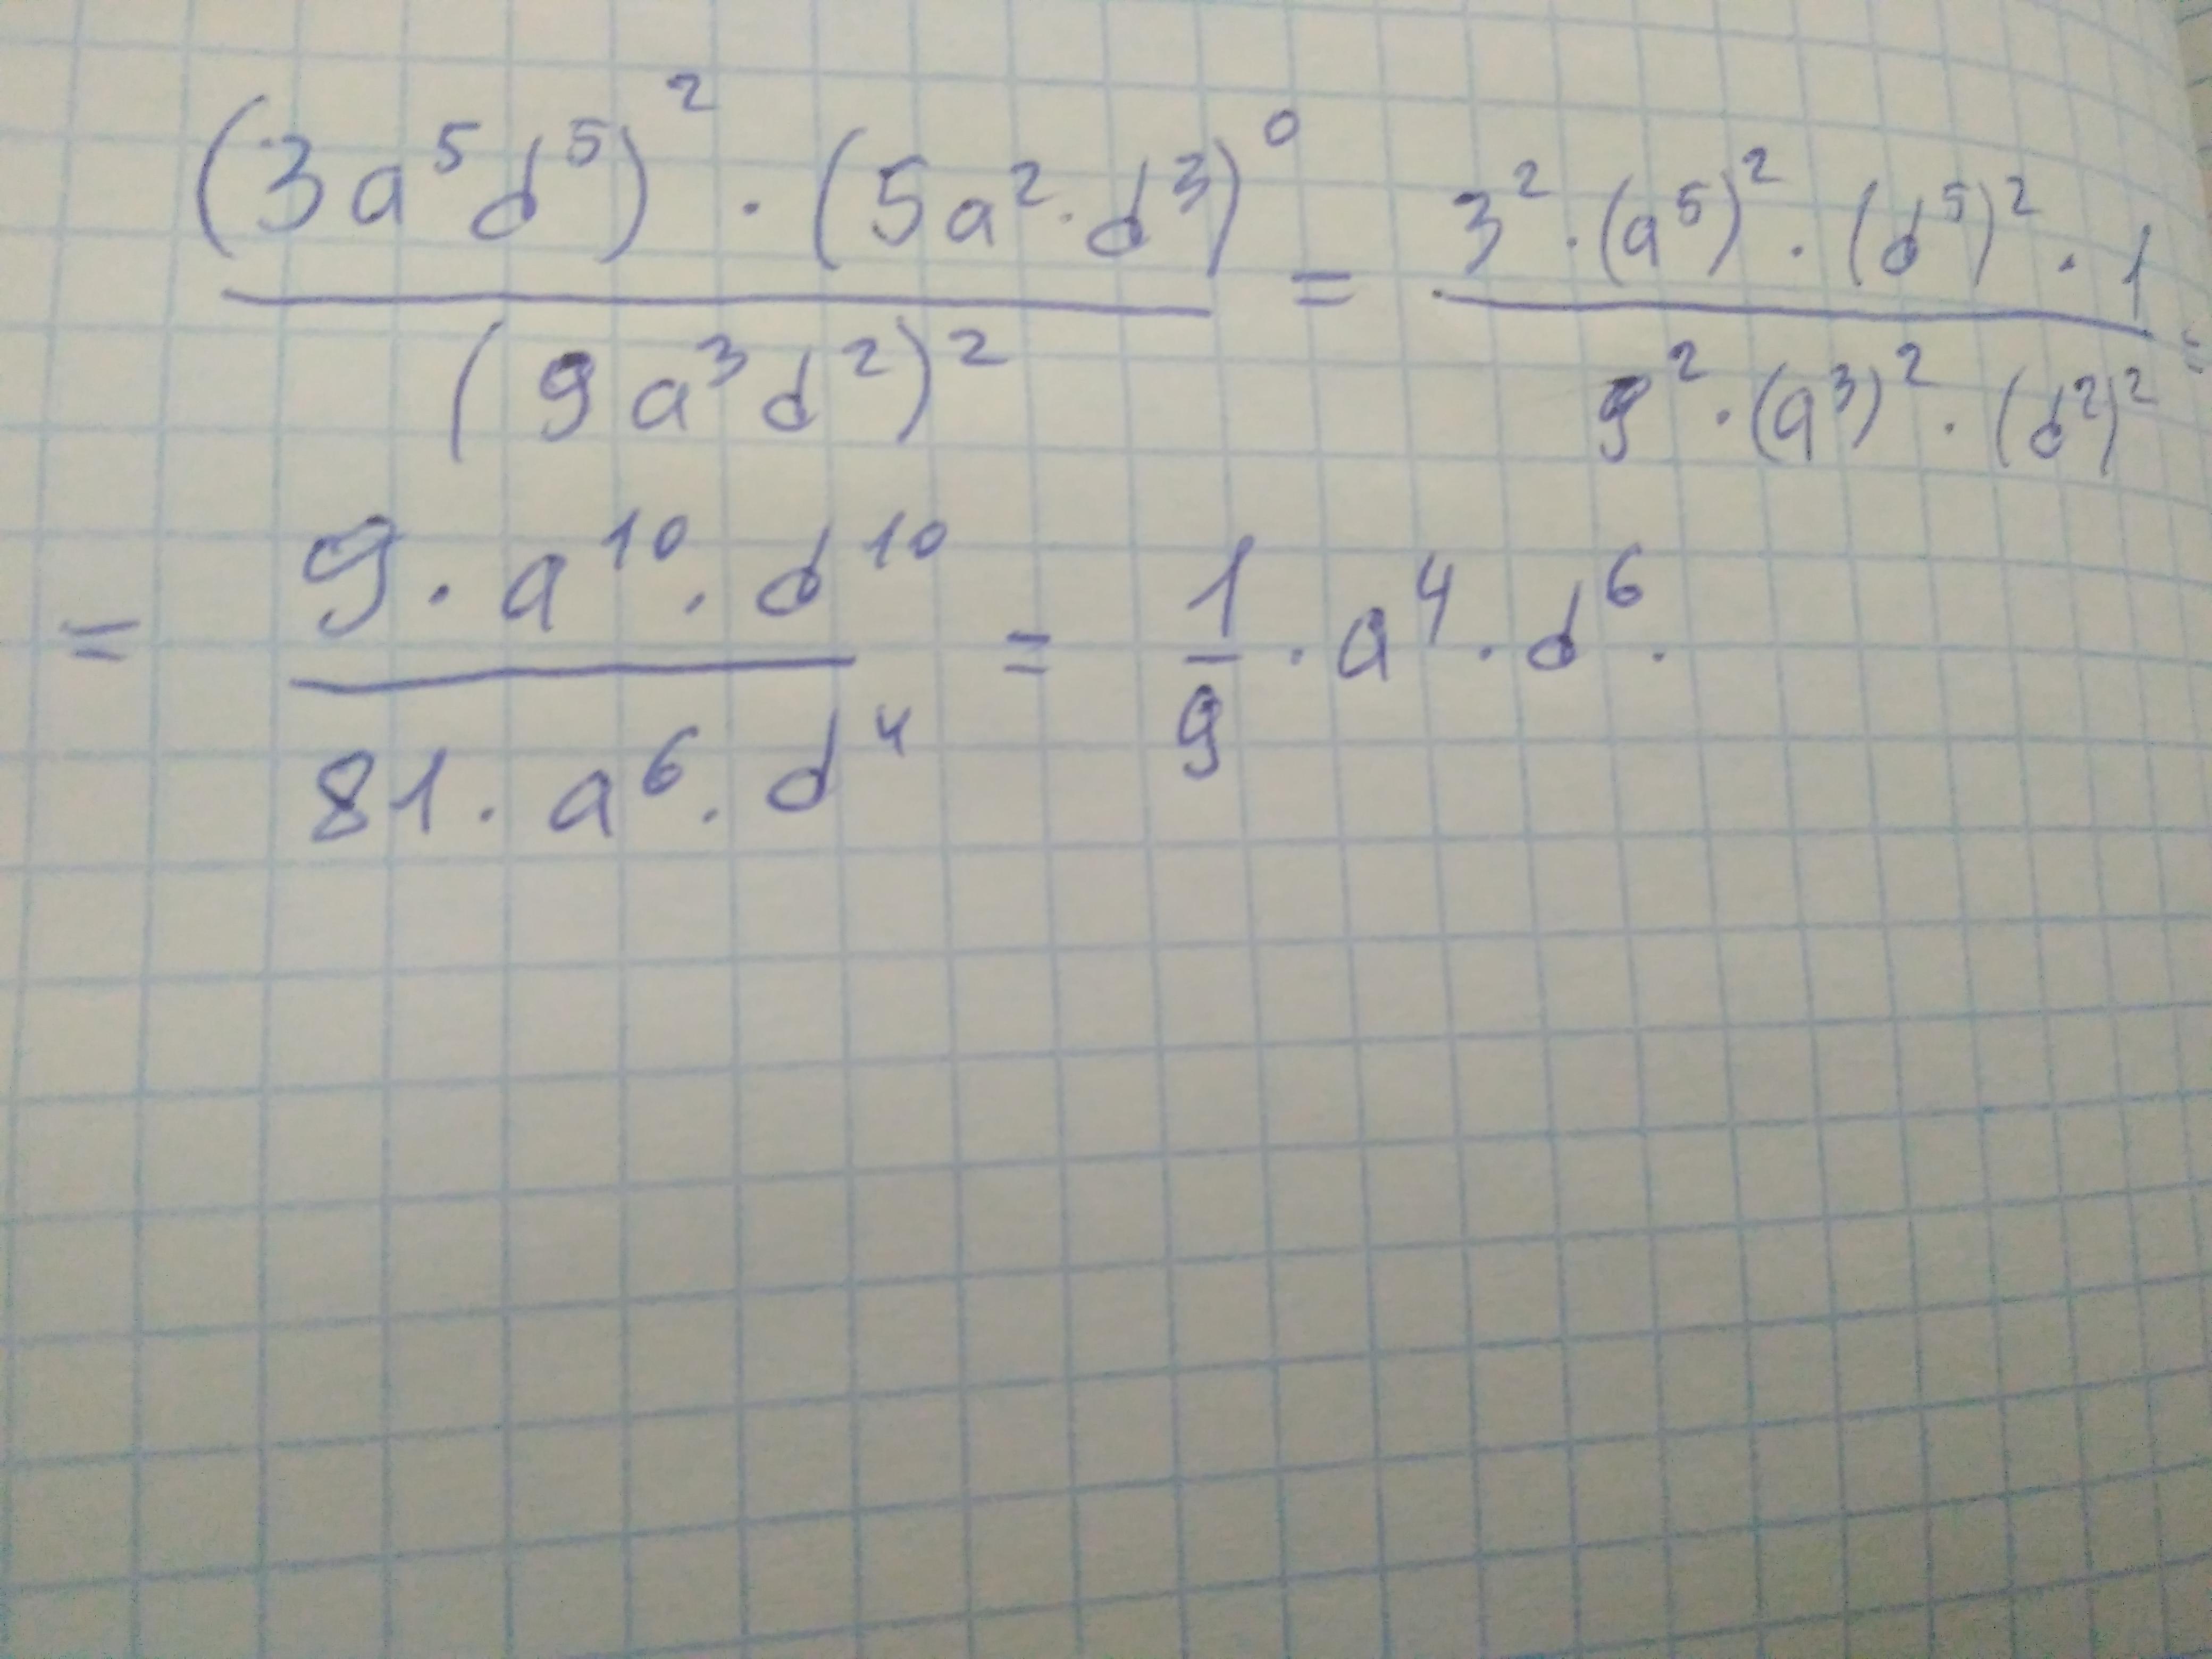 (3a⁵d⁵)² · (5a² · d³)⁰ / (9a³d²)² = 3² · (a⁵)² · (d⁵)² · 1 / 9² · (a³)² · (d²)² =
= 9 · a¹⁰ · d¹⁰ / 81 · a⁶ · d⁴ = 1/9 · a⁴ · d⁶ .